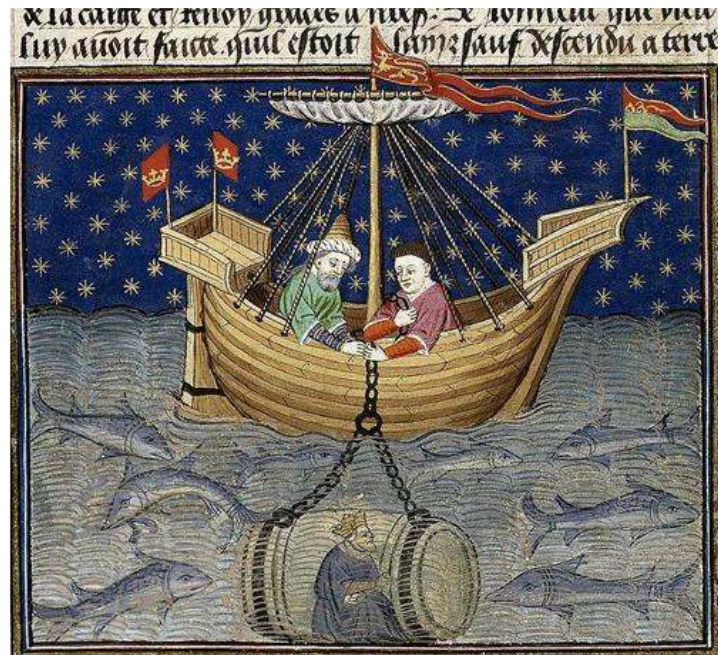 de la caige et graces a De lonneur que dieu
luy auoit faicte quil estoit sain & sauf descendu a terre